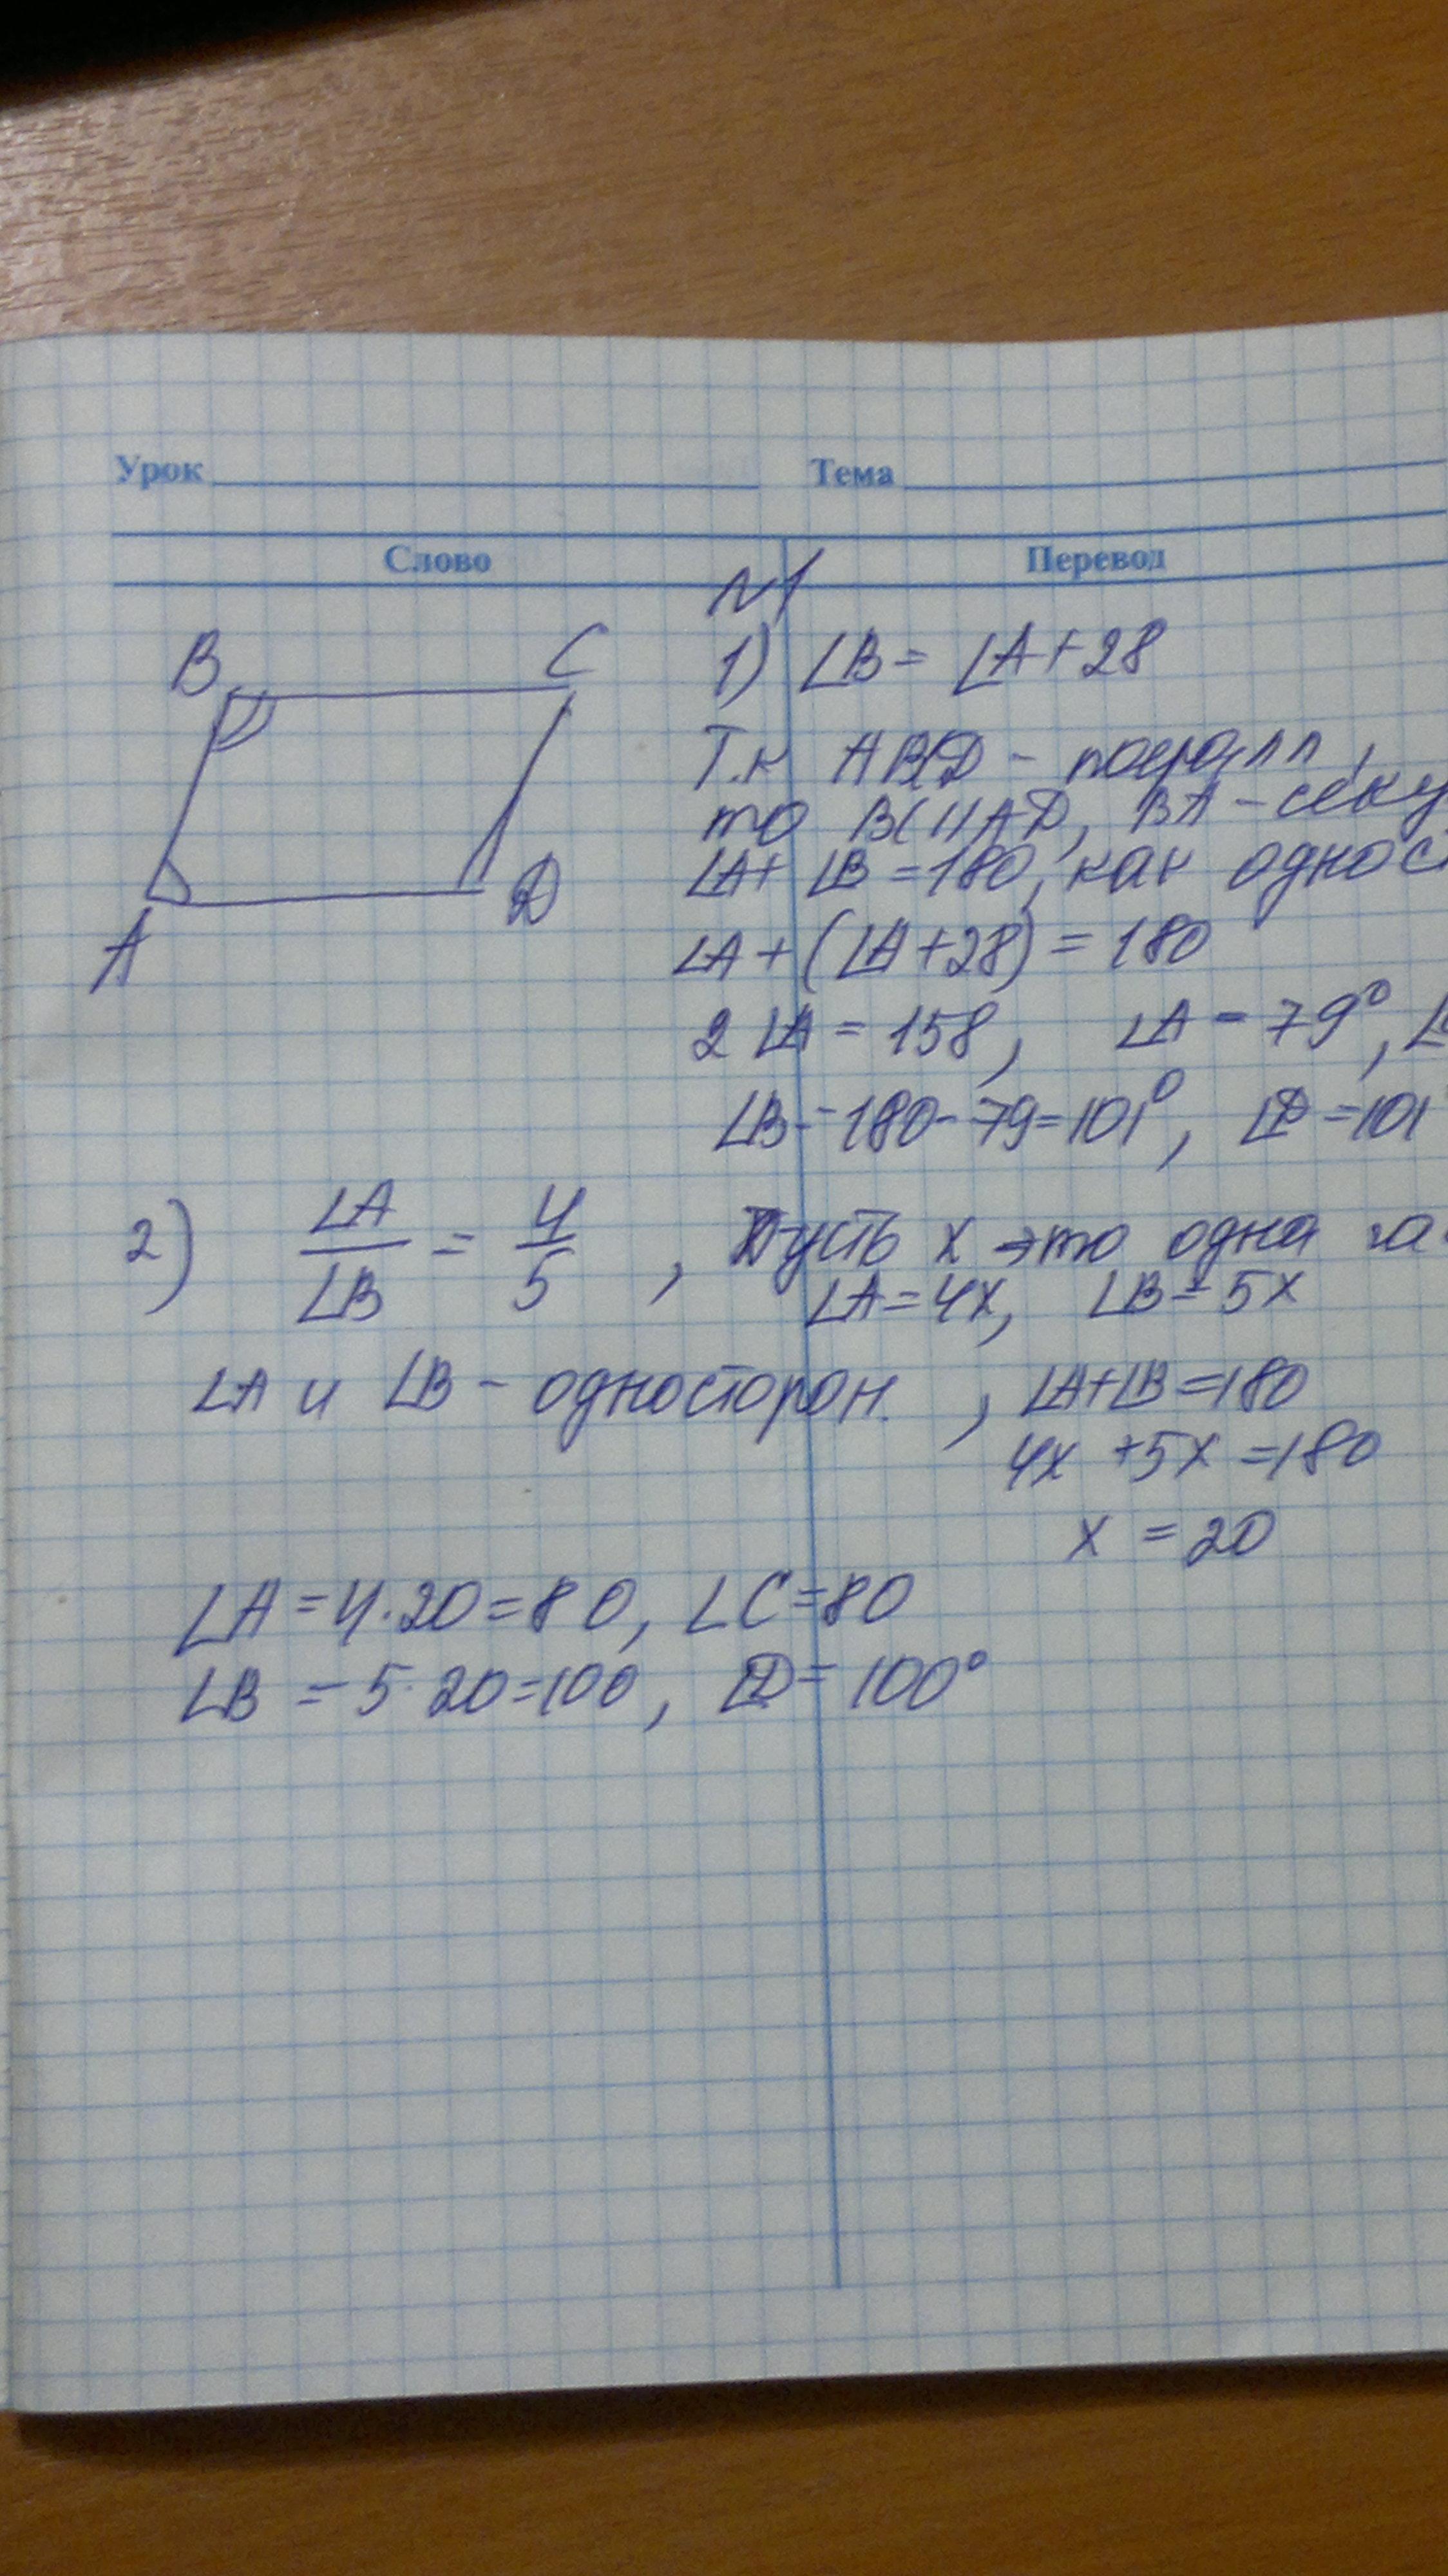 Урок Тема
Слово Перевод
N1
B C
A D
1) ∠B = ∠A+28
Т.к ABCD -
то BC||AD, BA - секу
∠A+ ∠B =180, как однос
∠A + (∠A +28) = 180
2 ∠A = 158, ∠A = 79°, ∠
∠B = 180 - 79 = 101°, ∠D = 101
2) ∠A/∠B = 4/5, Пусть x это одна ча
∠A = 4x, ∠B = 5x
∠A и ∠B - односторон. , ∠A+∠B =180
4x +5x =180
x = 20
∠A = 4·20 = 80, ∠C = 80
∠B = 5·20=100, ∠D = 100°